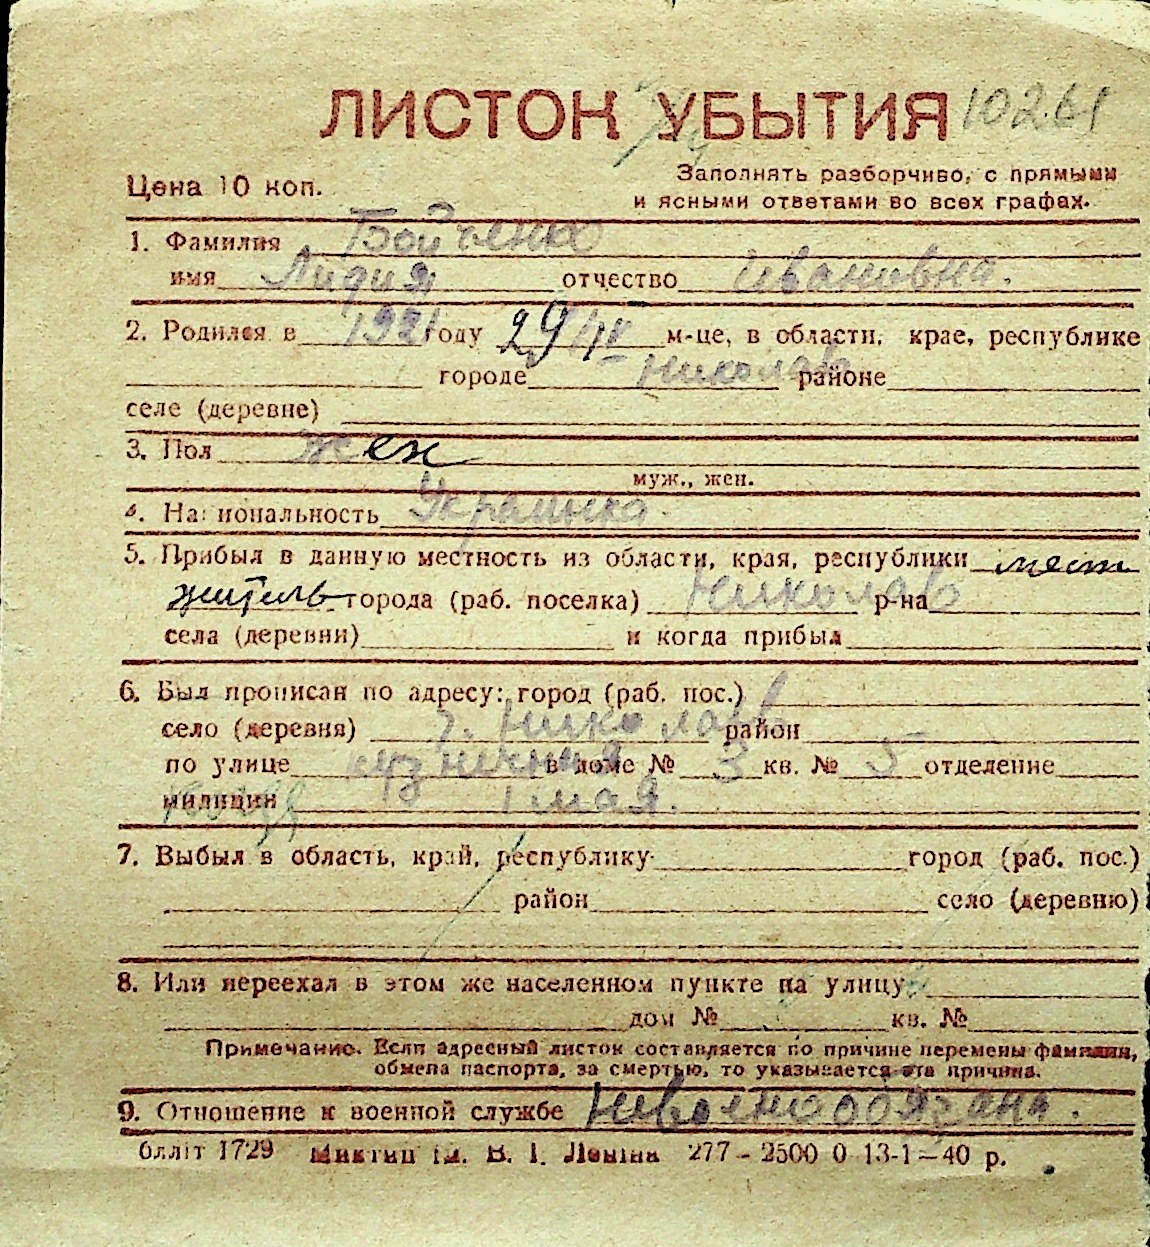 ЛИСТОК УБЫТИЯ 10261
Цена 10 коп.
Заполнять разборчиво, с прямыми
и ясными ответами во всех графах.
1. Фамилия Бойченко
имя Лидия отчество Ивановна.
2. Родился в 1921 году 29/IV м-це, в области, крае, республике
городе Николаев районе
селе (деревне)
3. Пол жен
муж., жен.
4. Национальность Украинка.
5. Прибыл в данную местность из области, края, республики мест
житель города (раб. поселка) Николаев р-на
села (деревни) и когда прибыл
6. Был прописан по адресу: город (раб. пос.)
село (деревня) г. Николаев район
по улице кузнечная в доме № 3 кв. № 5 отделение
милиции 1 мая.
7. Выбыл в область, край, республику город (раб. пос.)
район село (деревню)
8. Или переехал в этом же населенном пункте на улицу
дом № кв. №
Примечание. Если адресный листок составляется по причине перемены фамилии,
обмена паспорта, за смертью, то указывается эта причина.
9. Отношение к военной службе Невоеннообязана.
бліт 1729 Миктип ім. В. І. Леніна 277 - 2500 0 13-1-40 р.